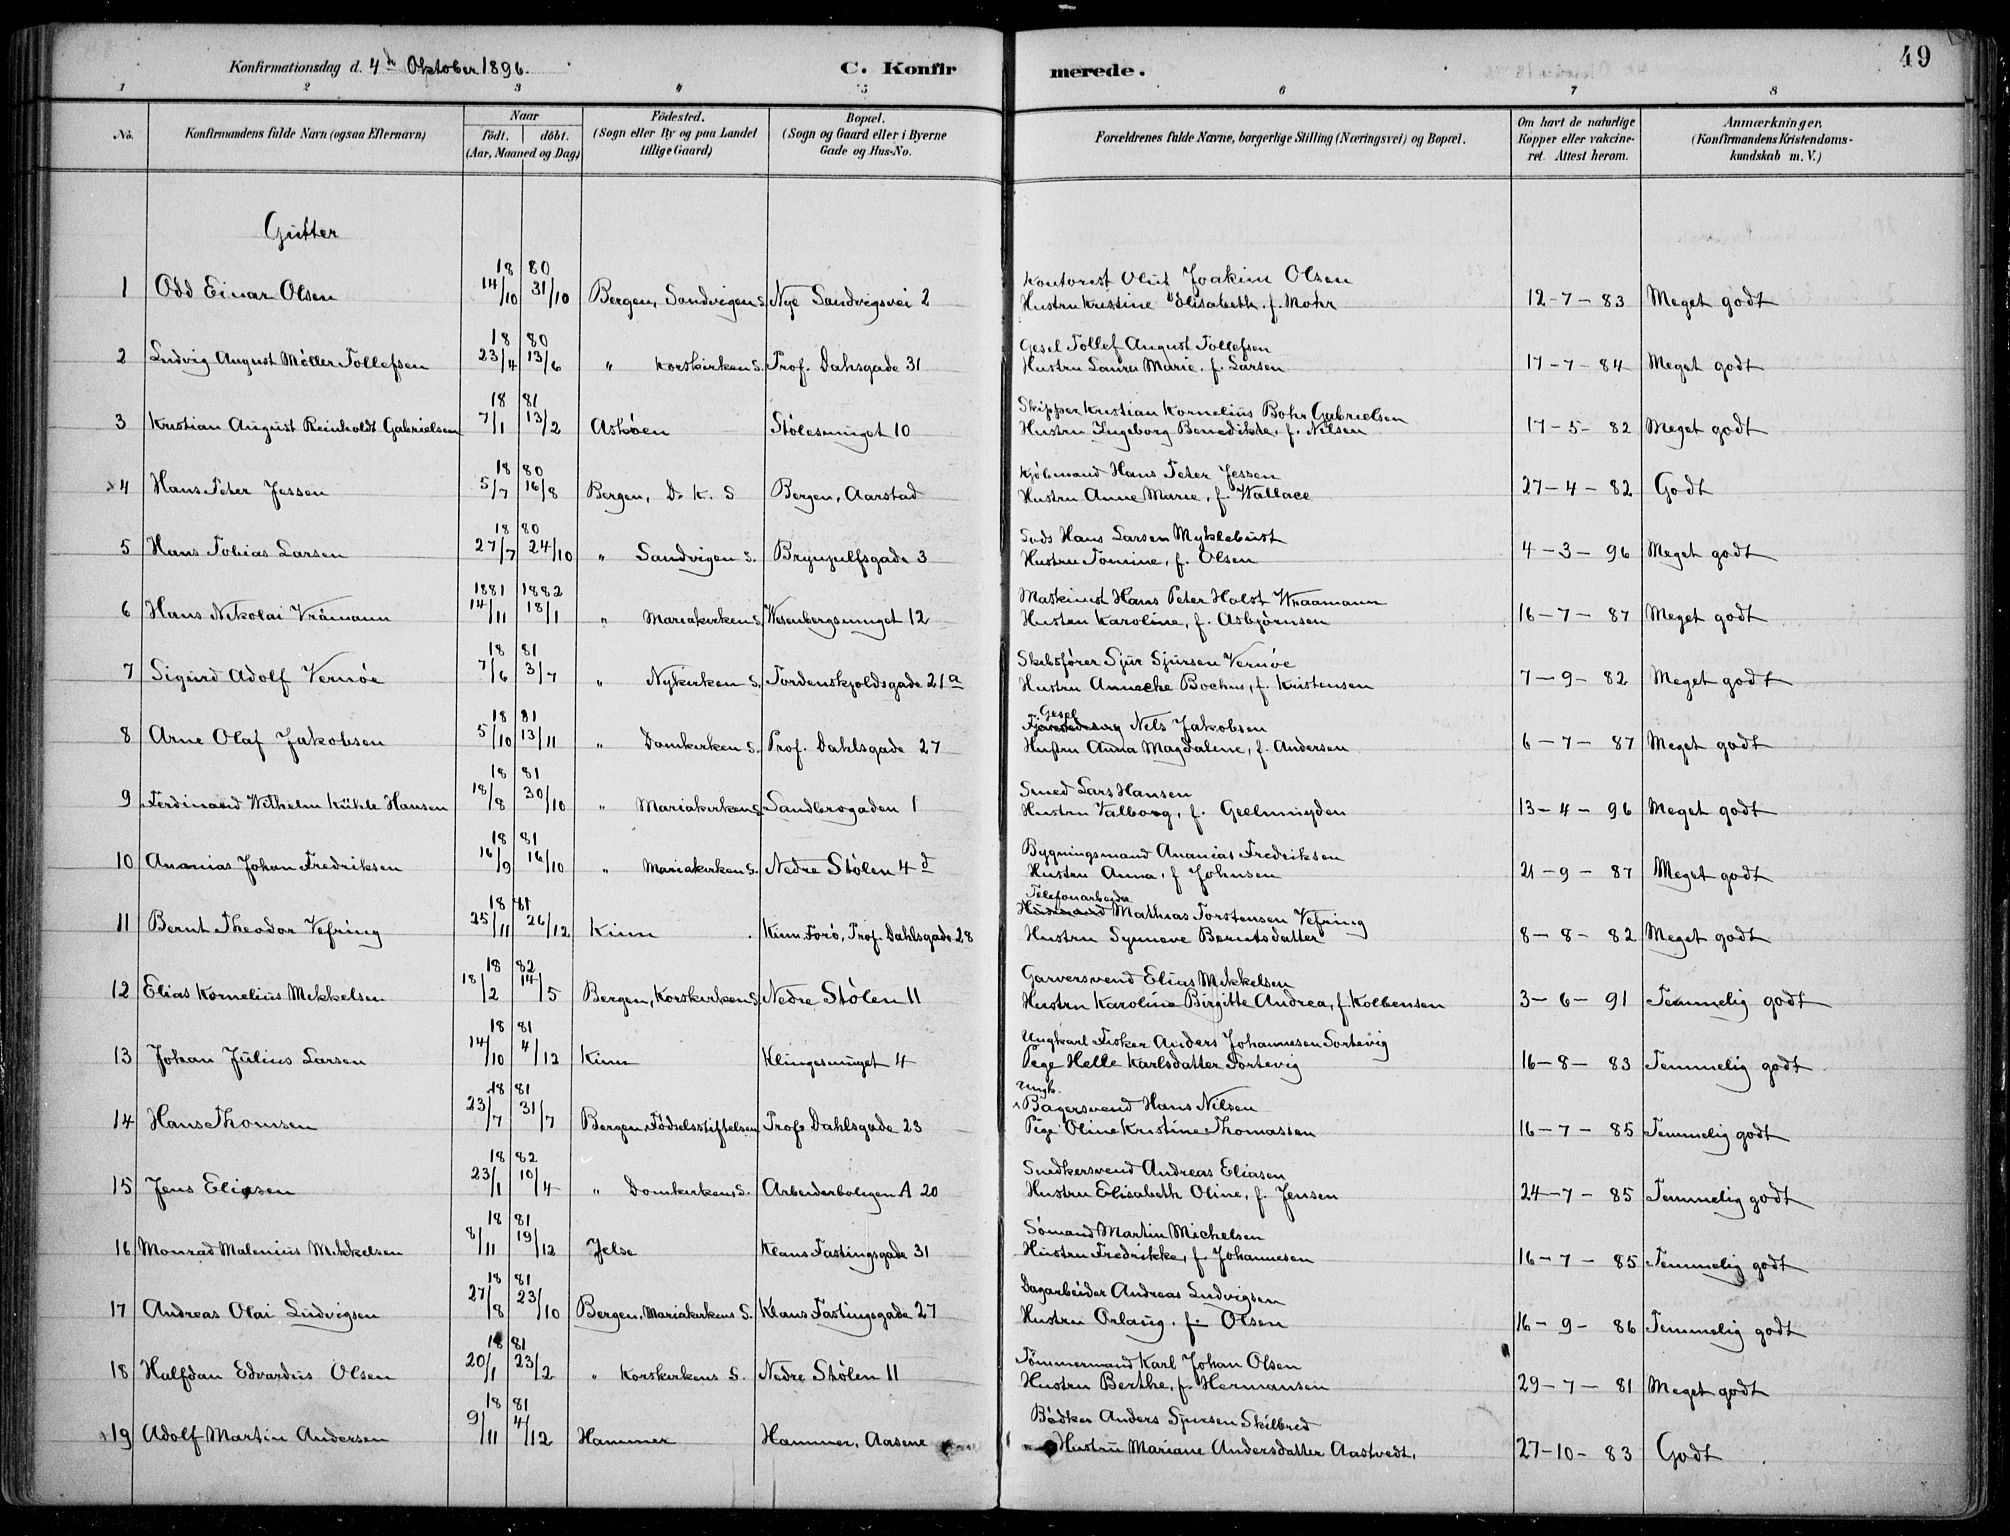 49
Konfirmationsdag d. 4de Oktober 1896. C. Konfirmerede.
1 2 3 4 5 6 7 8
No. Konfirmandens fulde Navn (ogsaa Efternavn) Naar födt. döbt. (Aar, Maaned og Dag) Födested. (Sogn eller By og paa Landet tillige Gaard) Bopæl. (Sogn og Gaard eller i Byerne Gade og Hus-No. Forældrenes fulde Navne, borgerlige Stilling (Næringsvei) og Bopæl. Om havt de naturlige Kopper eller vakcineret. Attest herom. Anmærkninger. (Konfirmandens Kristendomskundskab m. V.)
Gutter
1 Odd Einar Olsen 18 80 14/10 31/10 Bergen, Sandvigen S. Nye Sandvigsvei 2 Kontorist Oluf Joakim Olsen
Hustru Kristine Elisabeth. f. Mohr 12-7-83 Meget godt
2 Ludvig August Møller Tollefsen 18 80 23/4 13/6 " Korskirken S. Prof. Dahsgade 31 Gesel Tollef August Tollefsen
Hustru Laura Marie. f. Larsen 17-7-84 Meget godt
3 Kristian August Reinholdt Gabrielsen 18 81 7/1 13/2 Askøen Stølesmuget 10 Skipper Kristian Kornelius Bohr Gabrielsen
Hustru Ingeborg Benedikte, f. Nilsen 17-5-82 Meget godt
x4 Hans Peter Jessen 18 80 5/7 16/8 Bergen, D. K. S Bergen, Aarstad Kjøbmand Hans Peter Jessen
Hustru Anne Marie, f. Wallace 27-4-82 Godt
5 Hans Tobias Larsen 18 80 27/7 24/10 " Sandvigen S. Brynjulfsgade 3 Hans Larsen Myklebust
Hustru Tomine, f. Olsen 4-3-96 Meget godt
6 Hans Nikolai Vråmann 1881 1882 14/11 18/1 " Mariakirken S. Wesenbergsmuget 12 Maskinist Hans Peter Holst Wraamann
Hustru Karoline, f. Asbjørnsen 16-7-87 Meget godt
7 Sigurd Adolf Vernøe 18 81 7/6 3/7 " Nykirken S. Tordenskjoldsgade 21a Skibsfører Sjur Sjursen Vernøe
Hustru Annecke Bochus, f. Kristensen 7-9-82 Meget godt
8 Arne Olaf Jakobsen 18 81 5/10 13/11 " Domkirken S. Prof. Dahlsgade 27 Gesel
Nels Jakobsen
Hustru Anna Magdalene, f. Andersen 6-7-87 Meget godt
9 Ferdinand Wilhelm Kühle Hansen 18 81 18/8 30/10 " Mariakirken S. Sandbrogaden 1 Smed Lars Hansen
Hustru Valborg, f. Geelmuyden 13-4-96 Meget godt
10 Ananias Johan Fredriksen 18 81 16/9 16/10 " Mariakirken S. Nedre Stølen 4d Bygningsmand Ananias Fredriksen
Hustru Anna, f Johnsen 21-9-87 Meget godt
11 Bernt Theodor Vefring 18 81 25/11 26/12 Kinn Kinn. Forø, Prof. Dahlsgade 28 Telefonarbeider
Husmand Mathias Torstensen Vefring
Hustru Synneve Berntsdatter 8-8-82 Meget godt
12 Elias Kornelius Mikkelsen 18 82 18/2 14/5 Bergen, Korskirken S. Nedre Stølen 11 Garversvend Elias Mikkelsen
Hustru Karoline Birgitte Andrea, f. Kolbensen 3-6-91 Temmelig godt
13 Johan Julius Larsen 18 81 14/10 4/12 Kinn Klingesmuget 4 Ungkarl Fisker Anders Johannesen Sortevig
Pege Helle Karlsdatter Sortevig 16-8-83 Temmelig godt
14 Hans Thomsen 18 81 23/7 31/7 Bergen Fødselsstiftelsen Prof. Dahlsgade 23 Ungk.
Bagersvend Hans Nilsen
Pige Oline Kristine Thomassen 16-7-85 Temmelig godt
15 Jens Eliasen 18 82 23/1 10/4 " Domkirken S. Arbeiderboligen A 20 Snedkersvend Andreas Eliasen
Hustru Elisabeth Oline, f. Jensen 24-7-85 Temmelig godt
16 Monrad Malenius Mikkelsen 18 81 8/11 19/12 Jelse Klaus Fastingsgade 31 Sømand Martin Michelsen
Hustru Fredrikke, f. Johannesen 16-7-85 Temmelig godt
17 Andreas Olai Ludvigsen 18 81 27/8 23/10 Bergen, Mariakirkens S. Klaus Fastingsgade 27 Dagarbeider Andreas Ludvigsen
Hustru Orlaug. f. Olsen 16-9-86 Temmelig godt
18 Halfdan Edvardus Olsen 18 81 20/1 23/2 " Korskirkens S. Nedre Stølen 11 Tømmermand Karl Johan Olsen
Hustru Berthe, f. Hermansen 29-7-81 Meget godt
x19 Adolf Martin Andersen 18 81 9/11 4/12 Hammer Hammer, Aasene Bødker Anders Sjursen Skilbred
Hustru Mariane Andersdatter Aastvedt. 27-10-83 Godt